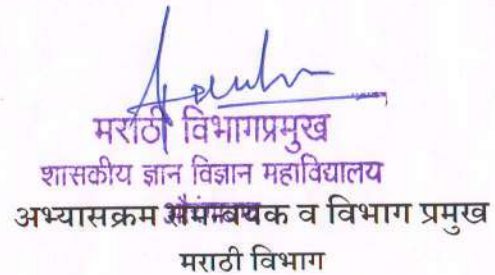 मराठी विभागप्रमुख
शासकीय ज्ञान विज्ञान महाविद्यालय
अभ्यासक्रम समन्वयक व विभाग प्रमुख
मराठी विभाग